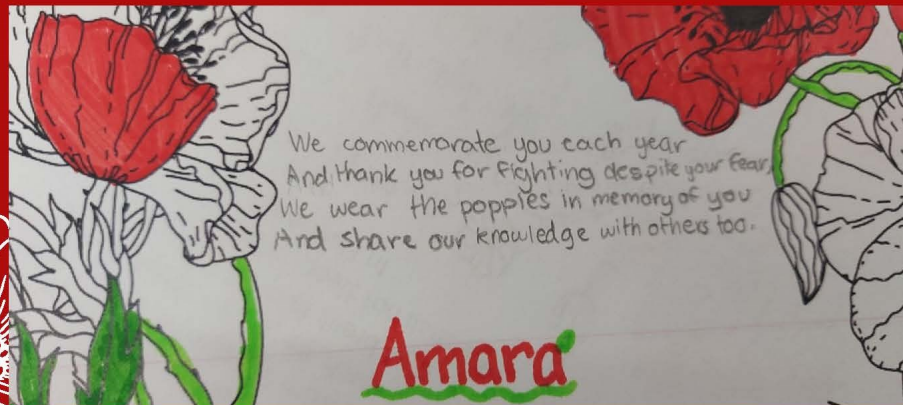 We commemorate you each year
And thank you for fighting despite your fear,
We wear the poppies in memory of you
And share our knowledge with others too.
Amara